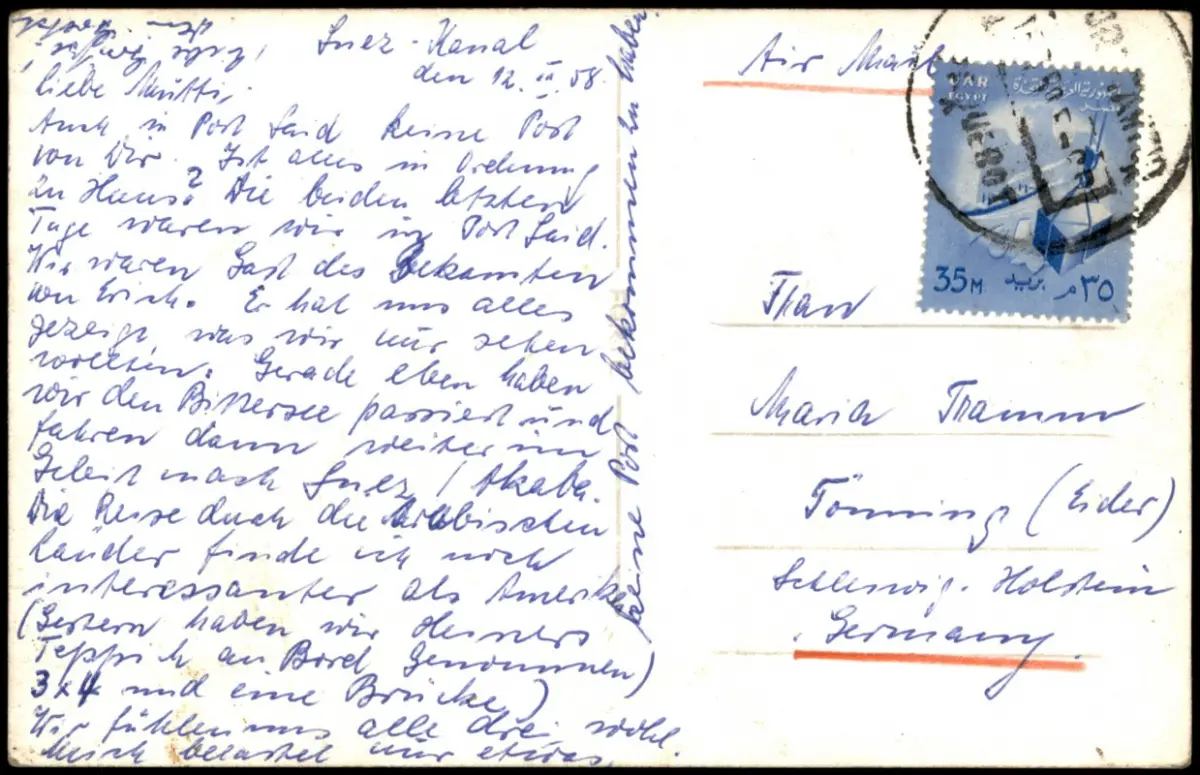 Suez-Kanal
den 12. III. 58
liebe Mutti,
Auch in Port Said keine Post
von Dir. Ist alles in Ordnung
zu Hause? Die beiden letzten
Tage waren wir in Port Said.
Wir waren Gast des Bekannten
von Erich. Er hat uns alles
gezeigt, was wir nur sehen
wollten. Gerade eben haben
wir den Bittersee passiert und
fahren dann weiter im
Geleit nach Suez / Akaba.
Die Reise durch die Arabischen
Länder finde ich noch
interessanter als Amerika
(Gestern haben wir Heiners
Teppich an Bord genommen)
3x4 und eine Brücke)
Wir fühlen uns alle drei wohl.
Mich belastet nur etwas,
keine Post bekommen zu haben.
Air Mail
UAR
EGYPT
35 M
بريد
٣٥ م
Frau
Maria Thamm
Tönning (Eider)
Schleswig-Holstein
Germany